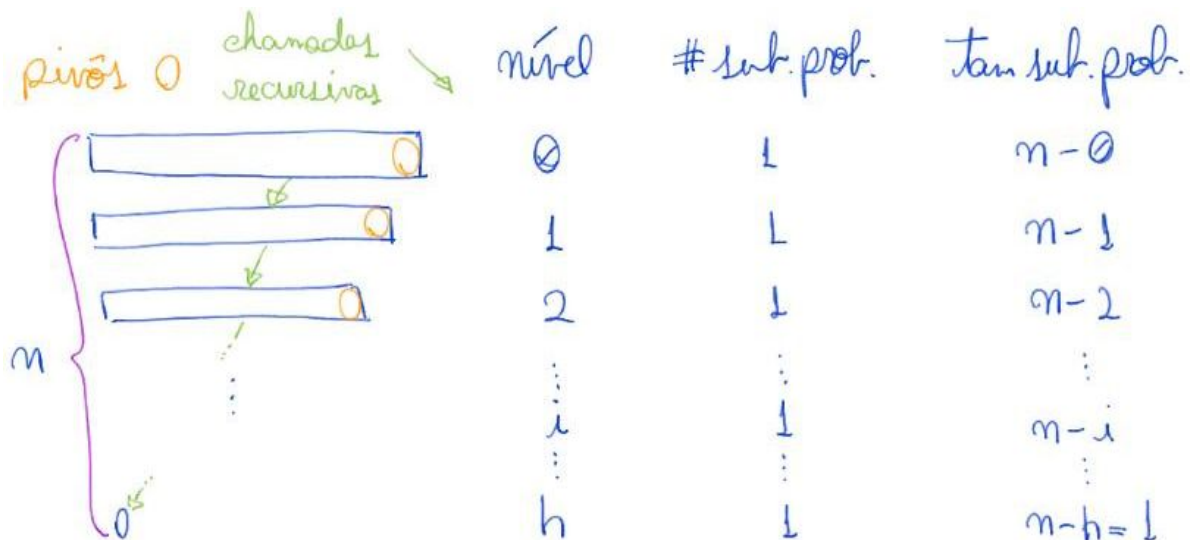 pivôs O chamadas recursivas nível # sub.prob. tam sub.prob.
0 1 n-0
1 1 n-1
2 1 n-2
n
⋮ ⋮ ⋮ ⋮
i 1 n-i
⋮ ⋮ ⋮
0 h 1 n-h=1